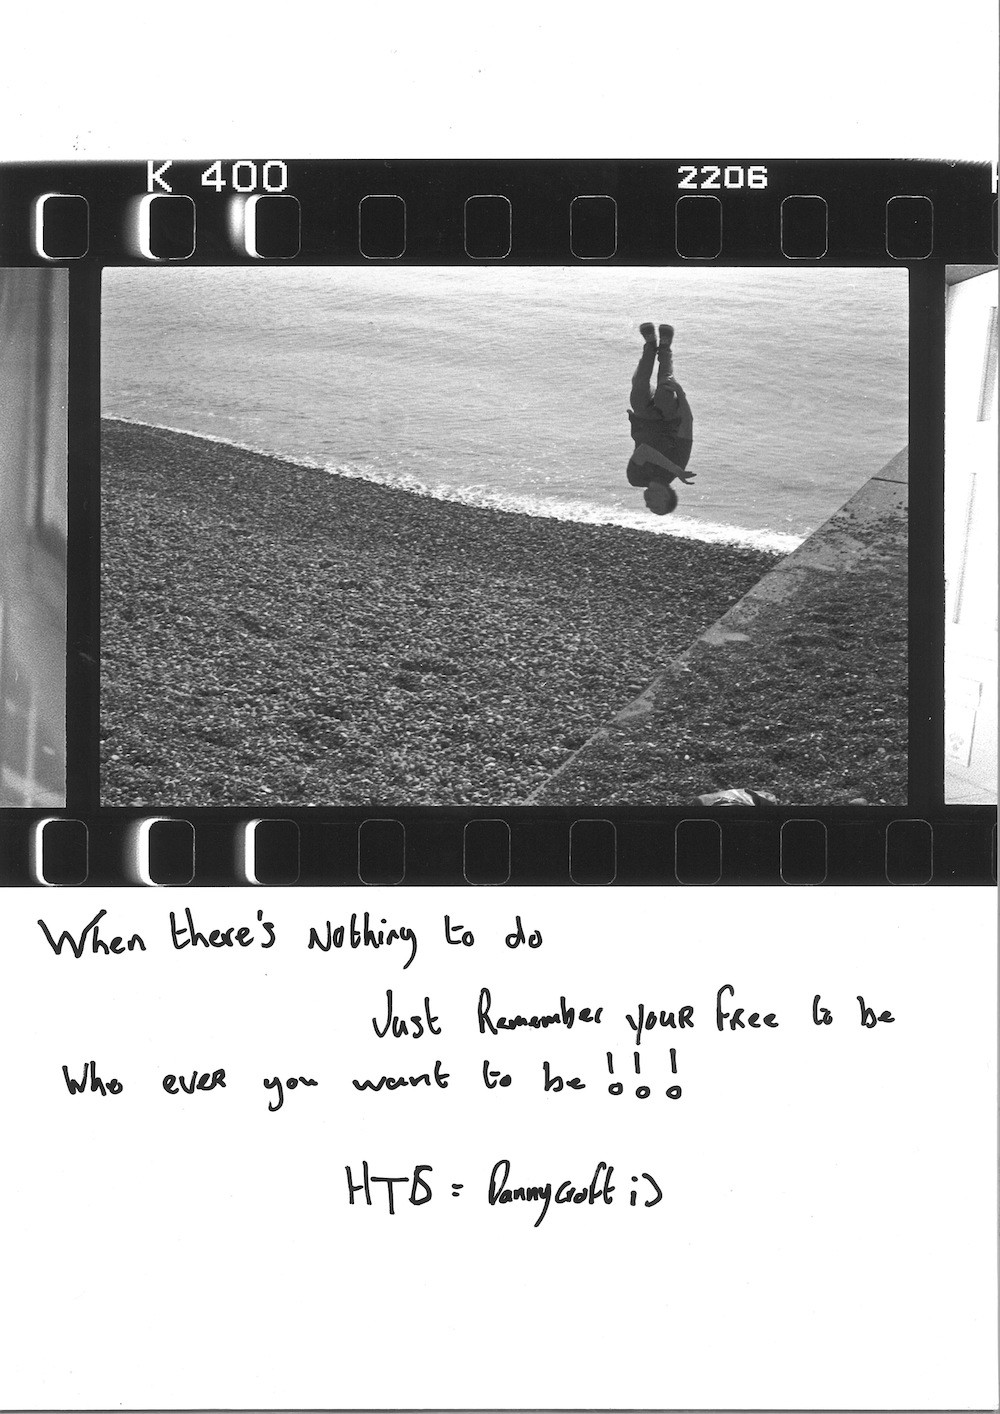 K 400 2206
When there's Nothing to do
Just Remember youR fRee to be
Who eveR you want to be !!!
HTB = Dannycroft :)